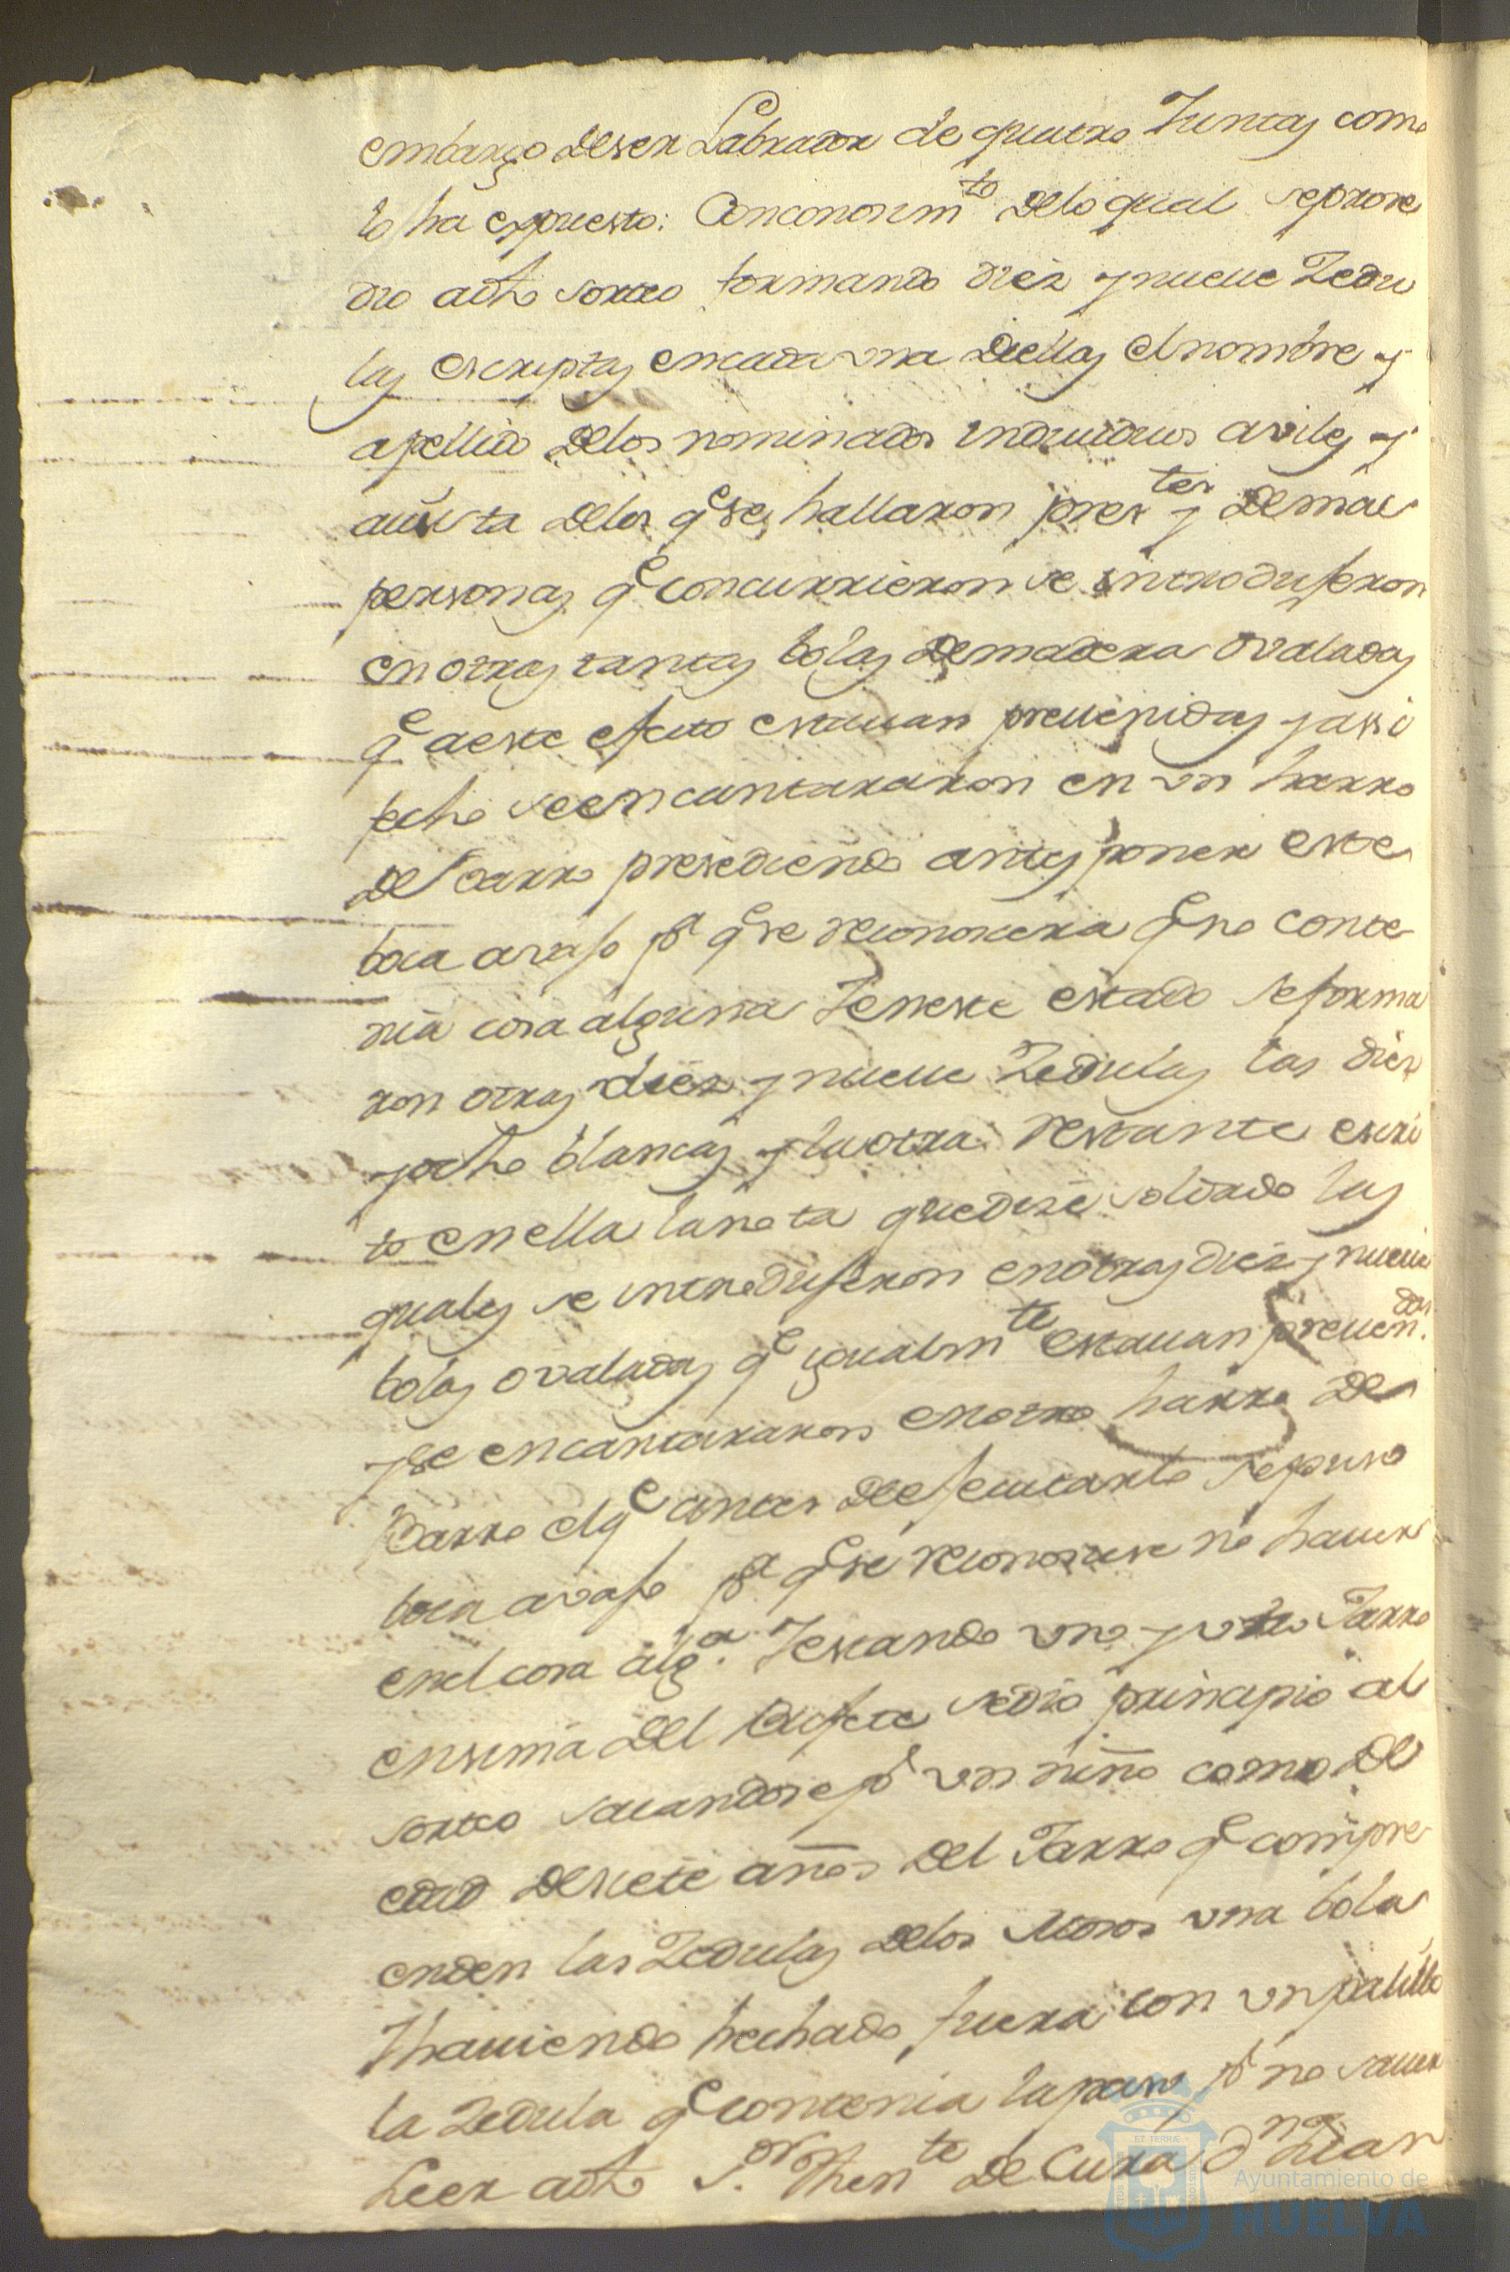 embargo deser Labrador de quatro Juntas como
lo ha expuesto: Conconosim.to delo qual seprose
dio adho sorteo formando diez y nueve Zedu
las escriptas encada vna deellas elnombre y
apellido delos nominados individuos aviles y
avista delos q.e se hallaron pres.tes y demas
personas q.e concurrieron se introdujeron
en otras tantas bolas demadera ovaladas
q.e aeste efecto estauan preuenidas y assi
fecho seencantararon en vn harro
de barro presediendo antes poner este
boca avajo p.a q.e se reconociera q.e no conte
nia cosa alguna Yeneste estado seforma
ron otras diez y nueue Zedulas las diez
yocho blancas y la otra restante escri
to enella lanota quedize soldado las
quales se introdujeron enotras diez y nueue
bolas ovaladas q.e igualm.te estauan preuen.das
yse encantararon enotro harro de
Barro elq.e antes deejecutarlo sepuso
boca avajo p.a q.e se reconosiese no hauer
enel cosa alg.a Yestando vno y otro Jarro
ensima del Bufete sedio principio al
sorteo sacandose p.r vn niño como de
edad desiete años del Jarro q.e compre
enden las Zedulas delos Mosos vna bola
Yhauiendo hechado fuera con vn palillo
la Zedula q.e contenia lapaso p.r no sauer
Leer adho S.or Then.te de Cura D.n Juan
Ayuntamiento de
HUELVA